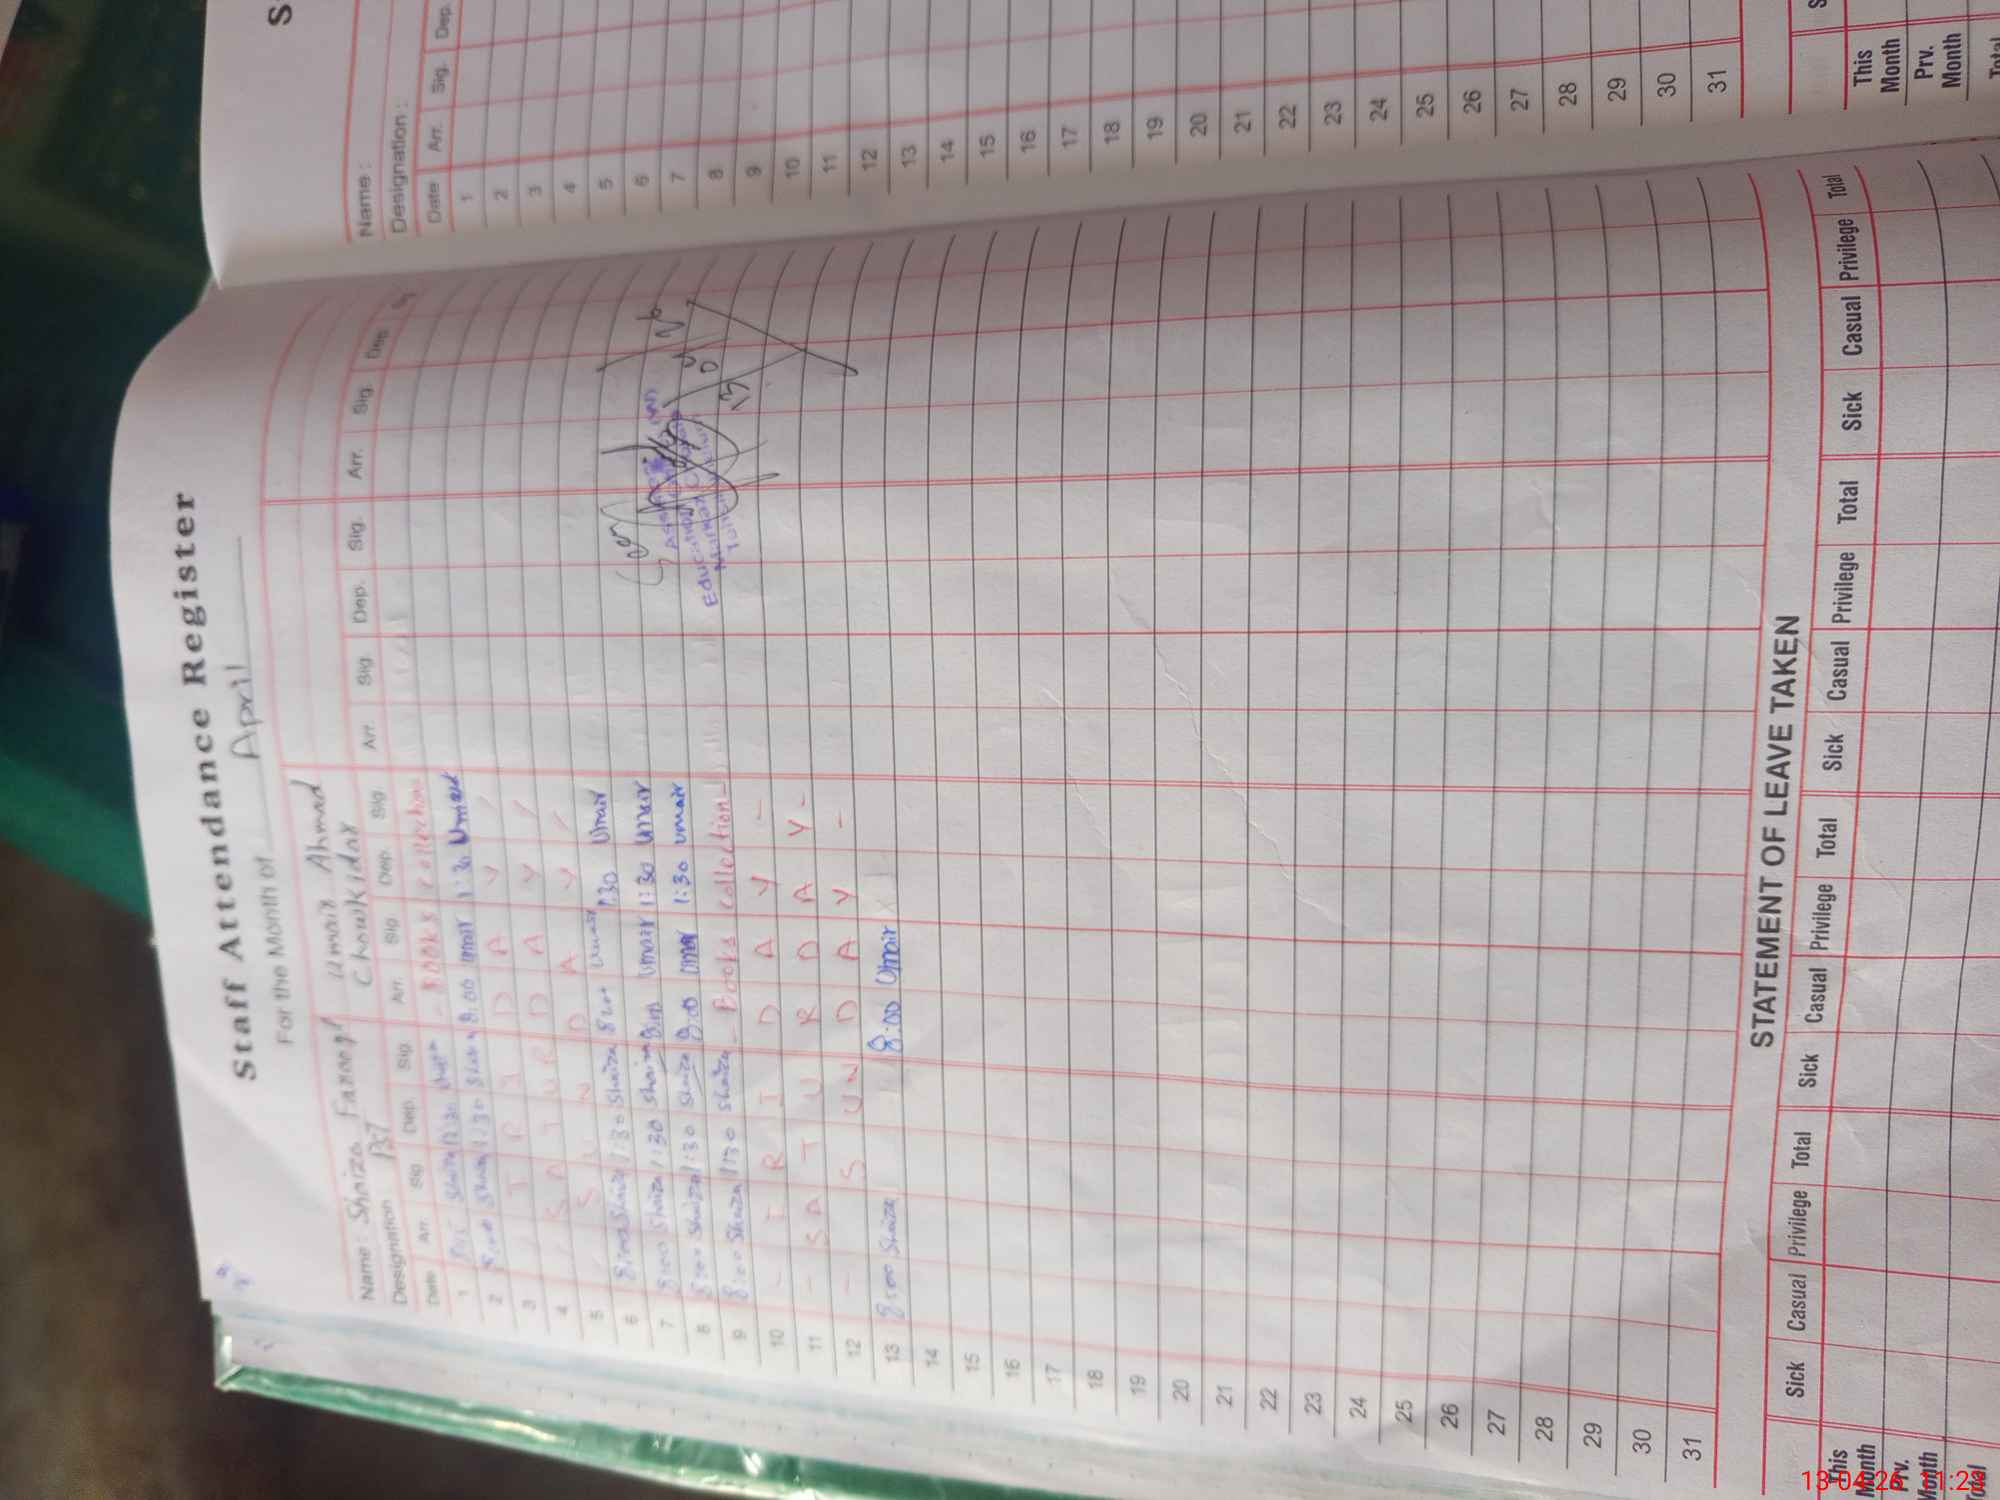 Staff Attendance Register
For the Month of April
Name: Shaiza Farooq Umair Ahmad
Designation PST Chowkidar
Date Arr. Sig Dep. Sig Arr. Sig Dep. Sig Arr. Sig. Dep. Sig. Arr. Sig. Dep.
1 Shaiza 1:30 - Books collection
2 8:00 Shaiza 1:30 Shaiza 8:00 Umair 1:30 Umair
3 F R I D A Y
4 S A T U R D A Y
5 S U N D A Y
6 8:00 Shaiza 1:30 Shaiza 8:00 Umair 1:30 Umair
7 8:00 Shaiza 1:30 Shaiza 8:00 Umair 1:30 Umair
8 8:00 Shaiza 1:30 Shaiza 8:00 Umair 1:30 Umair
9 8:00 Shaiza 1:30 Shaiza - Books collection -
10 - F R I D A Y -
11 - S A T U R D A Y -
12 - S U N D A Y -
13 8:00 Shaiza 8:00 Umair
14
15
16
17
18
19
20
21
22
23
24
25
26
27
28
29
30
31
STATEMENT OF LEAVE TAKEN
Sick Casual Privilege Total Sick Casual Privilege Total Sick Casual Privilege Total Sick Casual Privilege Total
This Month
Prv. Month
Total
S
Name:
Designation:
Date Arr. Sig. Dep.
1
2
3
4
5
6
7
8
9
10
11
12
13
14
15
16
17
18
19
20
21
22
23
24
25
26
27
28
29
30
31
This Month
Prv. Month
Total
13-04-26 11:23